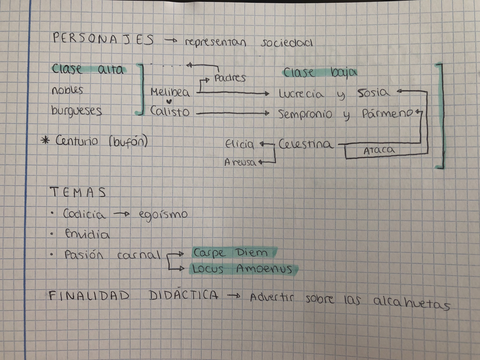 PERSONAJES → representan sociedad
Clase alta
Clase baja
Padres
nobles
Melibea → Lucrecia y Sosia
burgueses
Calisto → Sempronio y Pármeno
* Centurio (bufón)
Elicia ← Celestina
Ataca
Areusa
TEMAS
· Codicia → egoísmo
· Envidia
· Pasión carnal → Carpe Diem
→ Locus Amoenus
FINALIDAD DIDÁCTICA → Advertir sobre las alcahuetas